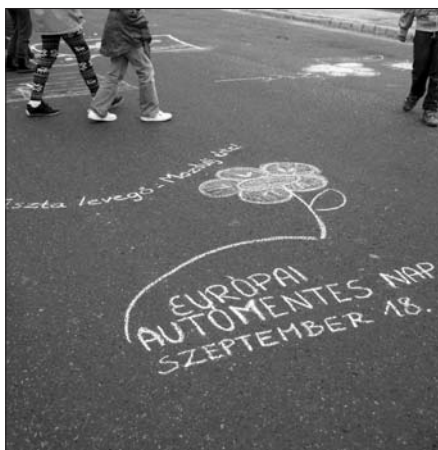 levegő - Mozdulj érte!
EURÓPAI
AUTÓMENTES NAP
SZEPTEMBER 18.